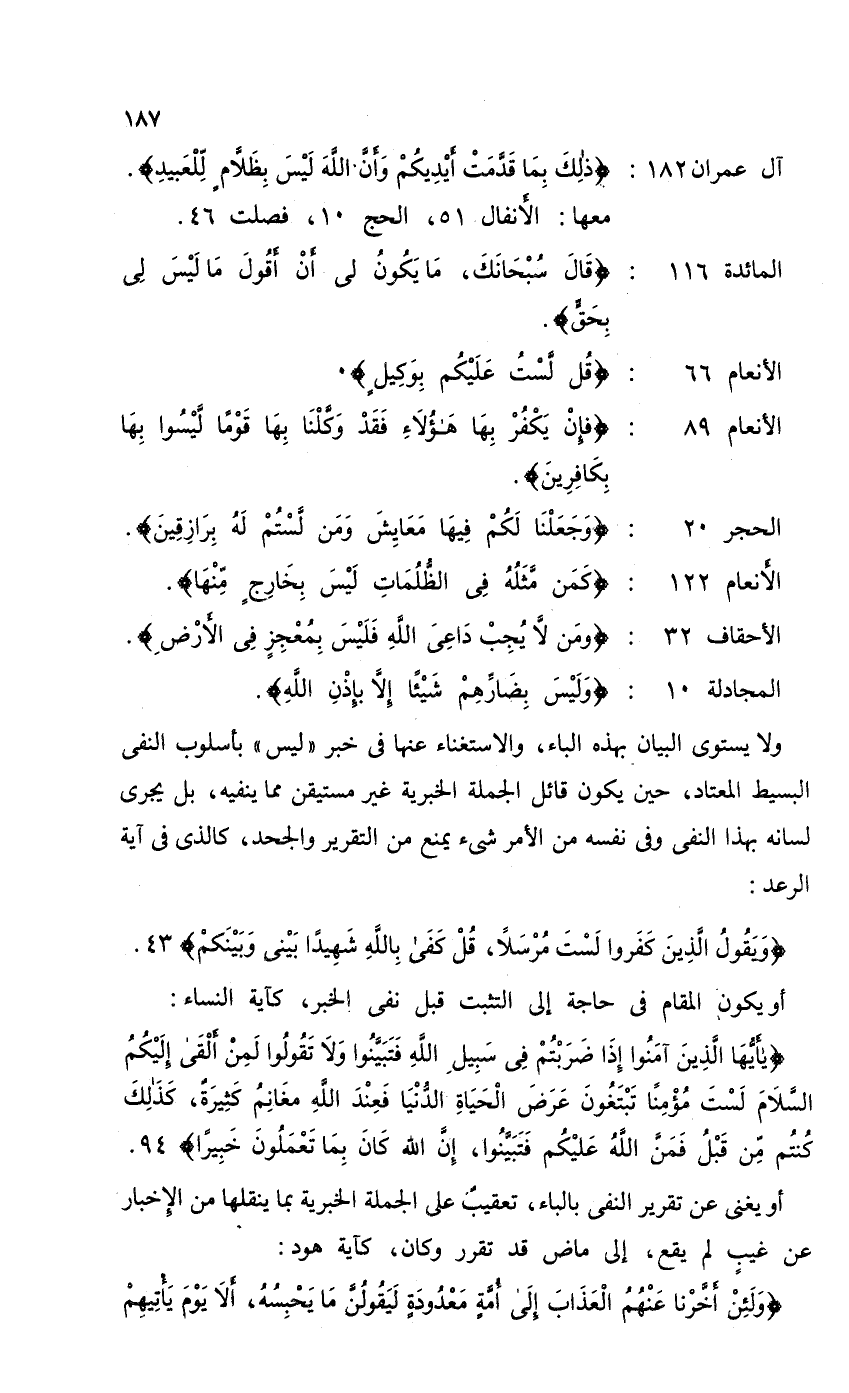 ١٨٧
آل عمران ١٨٢ : ﴿ذَٰلِكَ بِمَا قَدَّمَتْ أَيْدِيكُمْ وَأَنَّ اللَّهَ لَيْسَ بِظَلَّامٍ لِّلْعَبِيدِ﴾.
معها: الأنفال ٥١، الحج ١٠، فصلت ٤٦.
المائدة ١١٦ : ﴿قَالَ سُبْحَانَكَ، مَا يَكُونُ لى أَنْ أَقُولَ مَا لَيْسَ لِى
بِحَقٍّ﴾.
الأنعام ٦٦ : ﴿قُل لَّسْتُ عَلَيْكُم بِوَكِيلٍ﴾.
الأنعام ٨٩ : ﴿فإِنْ يَكْفُرْ بِهَا هَـٰؤُلَاءِ فَقَدْ وَكَّلْنَا بِهَا قَوْمًا لَّيْسُوا بِهَا
بِكَافِرِينَ﴾.
الحجر ٢٠ : ﴿وَجَعَلْنَا لَكُمْ فِيهَا مَعَايِشَ وَمَن لَّسْتُمْ لَهُ بِرَازِقِينَ﴾.
الأنعام ١٢٢ : ﴿كَمَن مَّثَلُهُ فِى الظُّلُمَاتِ لَيْسَ بِخَارِجٍ مِّنْهَا﴾.
الأحقاف ٣٢ : ﴿ومَن لَّا يُجِبْ دَاعِىَ اللَّهِ فَلَيْسَ بِمُعْجِزٍ فِى الأَرْضِ﴾.
المجادلة ١٠ : ﴿وَلَيْسَ بِضَارِّهِمْ شَيْئًا إِلَّا بِإِذْنِ اللَّهِ﴾.
ولا يستوى البيان بهذه الباء، والاستغناء عنها فى خبر «ليس» بأسلوب النفى
البسيط المعتاد، حين يكون قائل الجملة الخبرية غير مستيقن مما ينفيه، بل يجرى
لسانه بهذا النفى وفى نفسه من الأمر شىء يمنع من التقرير والجحد، كالذى فى آية
الرعد:
﴿وَيَقُولُ الَّذِينَ كَفَروا لَسْتَ مُرْسَلًا، قُلْ كَفَىٰ بِاللَّهِ شَهِيدًا بَيْنى وَبَيْنَكمْ﴾ ٤٣.
أو يكون المقام فى حاجة إلى التثبت قبل نفى الخبر، كآية النساء:
﴿يٰأَيُّهَا الَّذِينَ آمَنُوا إِذَا ضَرَبْتُمْ فِى سَبِيلِ اللَّهِ فَتَبَيَّنُوا وَلَا تَقُولُوا لَمِنْ أَلْقَىٰ إِلَيْكُمُ
السَّلَامَ لَسْتَ مُؤْمِنًا تَبْتَغُونَ عَرَضَ الْحَيَاةِ الدُّنْيَا فَعِنْدَ اللَّهِ مغَانِمُ كَثِيرَةٌ، كَذَٰلِكَ
كُنتُم مِّن قَبْلُ فَمَنَّ اللَّهُ عَلَيْكُم فَتَبَيَّنُوا، إِنَّ الله كَانَ بِمَا تَعْمَلُونَ خَبِيرًا﴾ ٩٤.
أو يغنى عن تقرير النفى بالباء، تعقيبٌ على الجملة الخبرية بما ينقلها من الإخبار
عن غيبٍ لم يقع، إلى ماض قد تقرر وكان، كآية هود:
﴿وَلَئِنْ أَخَّرْنا عَنْهُمُ الْعَذَابَ إِلَىٰ أُمَّةٍ مَعْدُودَةٍ لَيَقُولُنَّ مَا يَحْبِسُهُ، أَلَا يَوْمَ يَأْتِيهِمْ